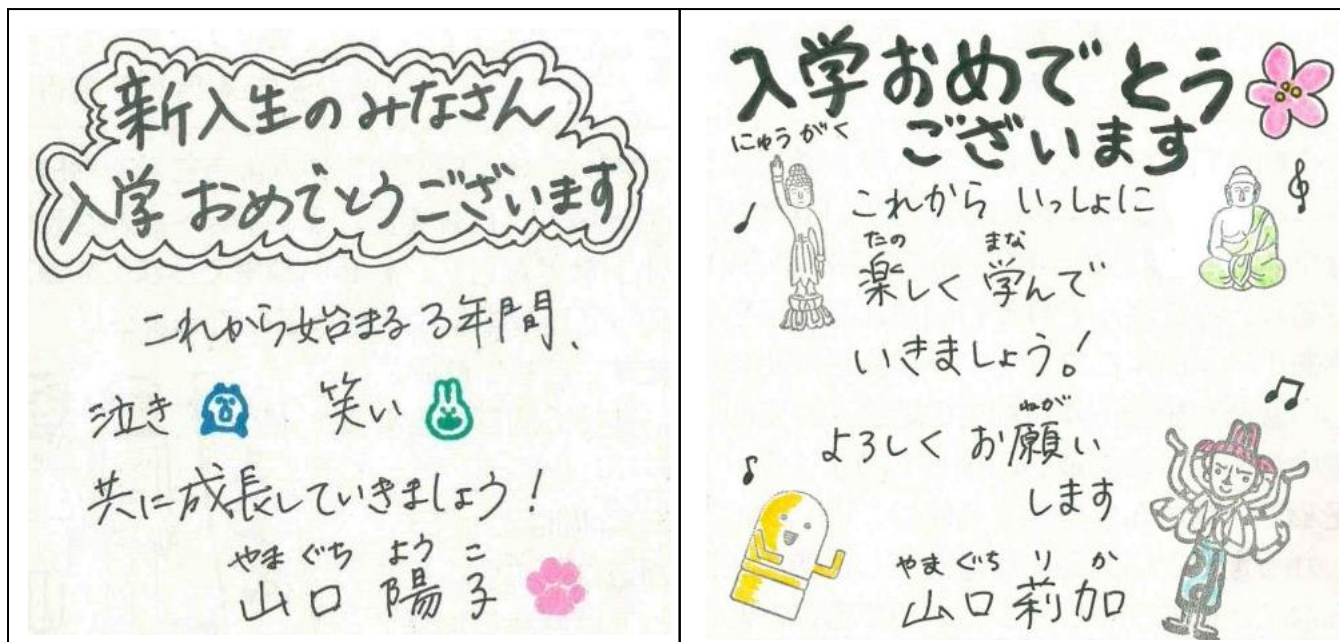 新入生のみなさん
入学おめでとうございます
これから始まる3年間、
泣き 笑い
共に成長していきましょう!
やまぐち ようこ
山口 陽子
入学おめでとう
にゅうがく
ございます
これから いっしょに
たの まな
楽しく 学んで
いきましょう!
ねが
よろしく お願い
します
やまぐち りか
山口 莉加